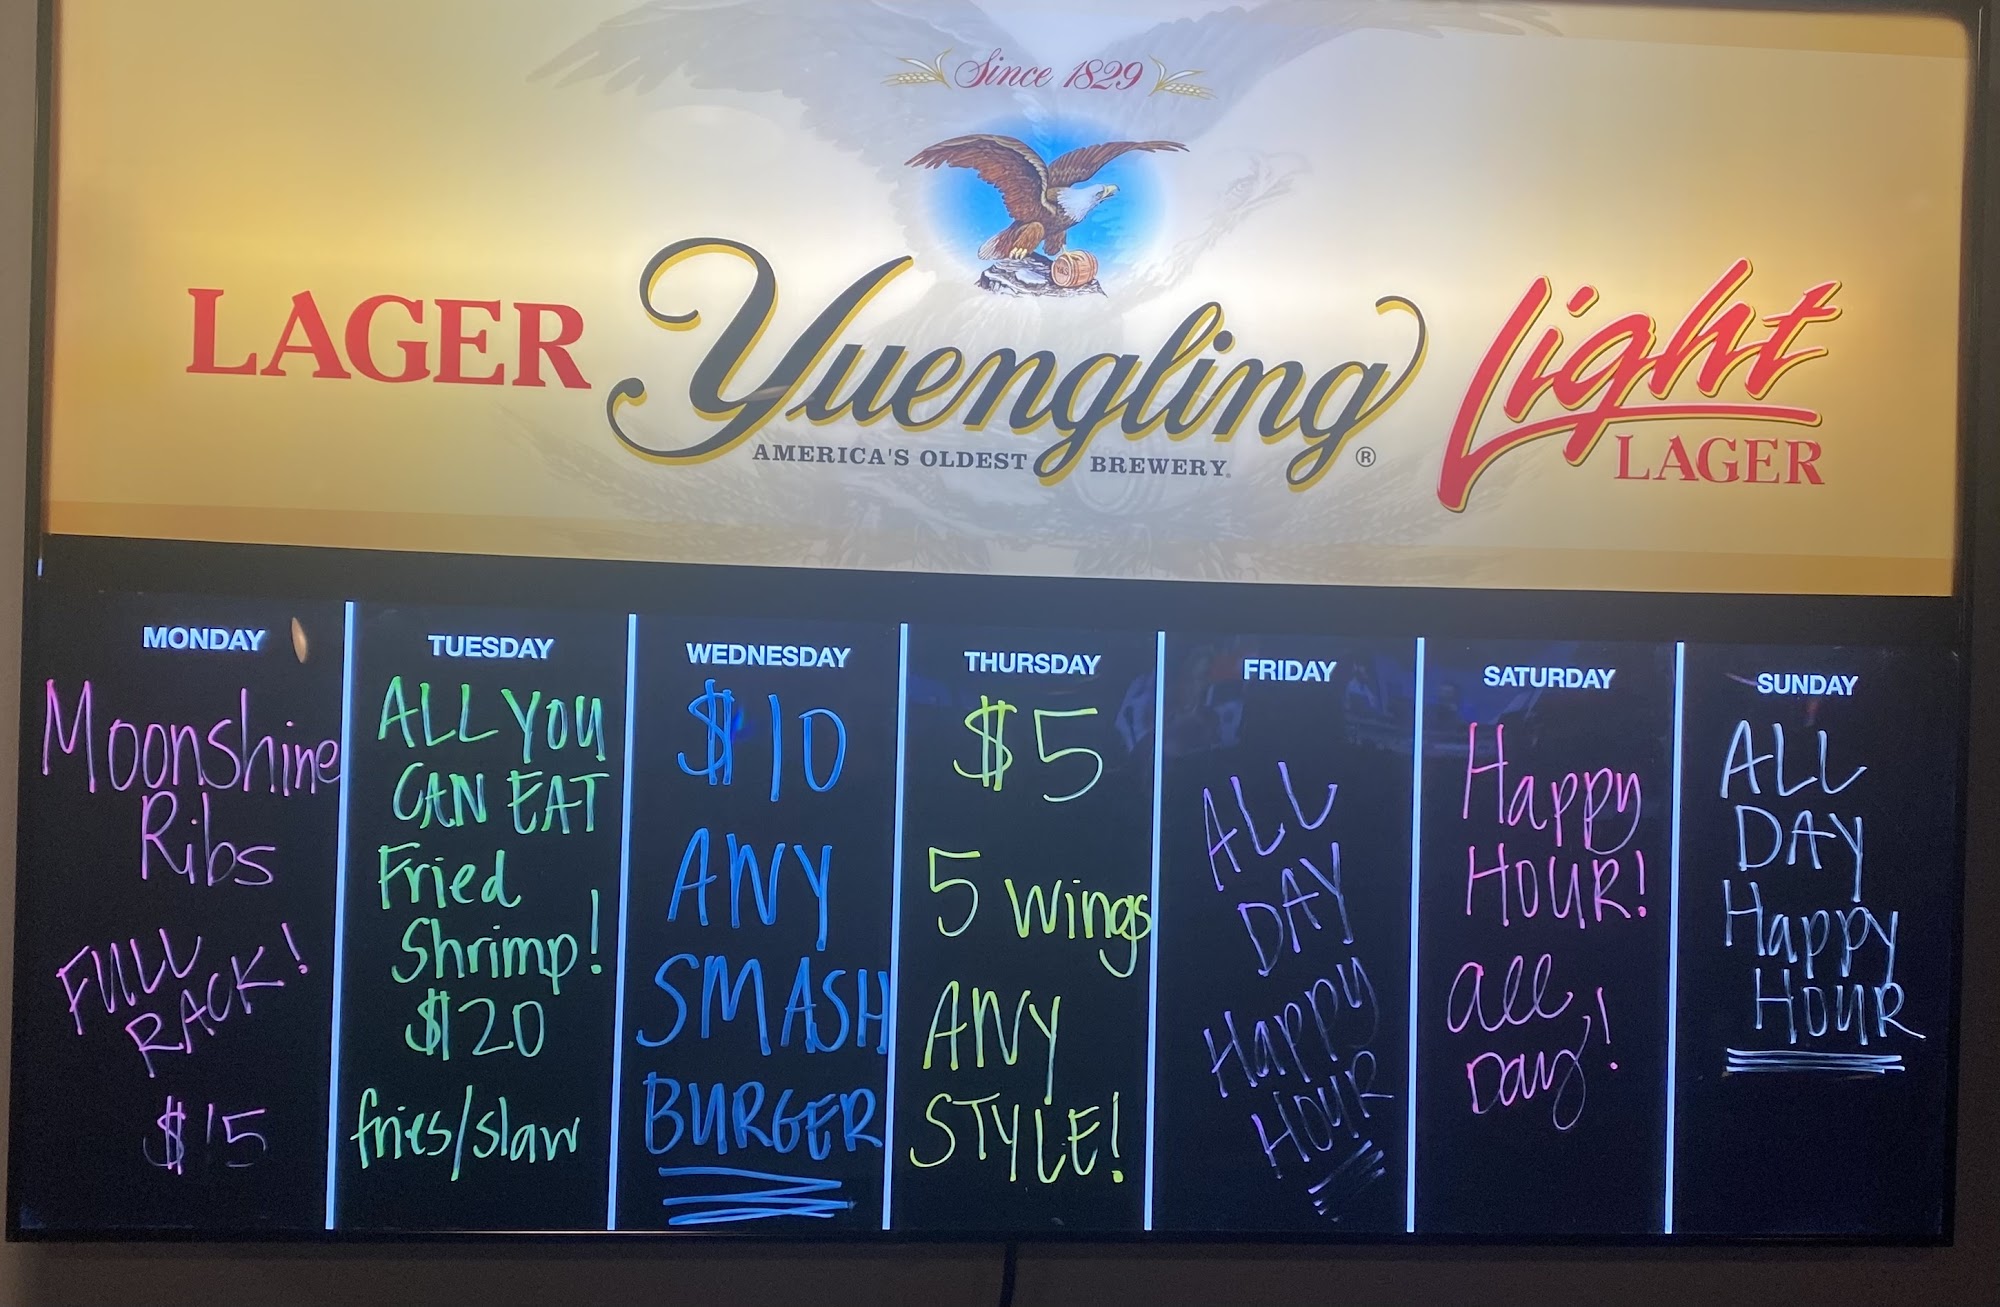 Since 1829
LAGER
Yuengling®
Light
LAGER
AMERICA'S OLDEST BREWERY
MONDAY
Moonshine
Ribs
FULL
RACK!
$15
TUESDAY
ALL YOU
CAN EAT
Fried
Shrimp!
$20
fries/slaw
WEDNESDAY
$10
ANY
SMASH
BURGER
THURSDAY
$5
5 wings
ANY
STYLE!
FRIDAY
ALL
DAY
Happy
HOUR
SATURDAY
Happy
HOUR!
all
Day!
SUNDAY
ALL
DAY
Happy
HOUR